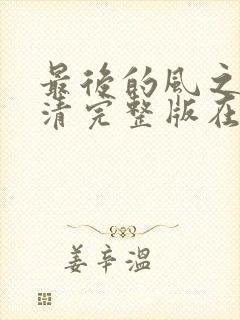 最後的風之
清完整版在
姜辛溫